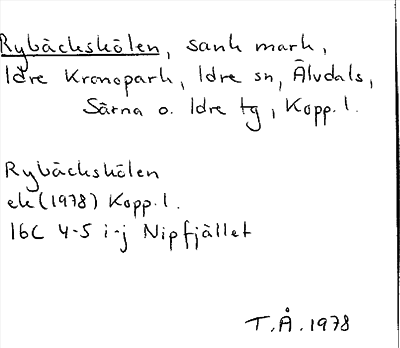 Rybäckskölen, sank mark,
Idre Kronopark, Idre sn, Älvdals,
Särna o. Idre tg, Kopp. l.
Rybäckskölen
ek (1978) Kopp. l.
16C 4-5 i-j Nipfjället
T.Å. 1978